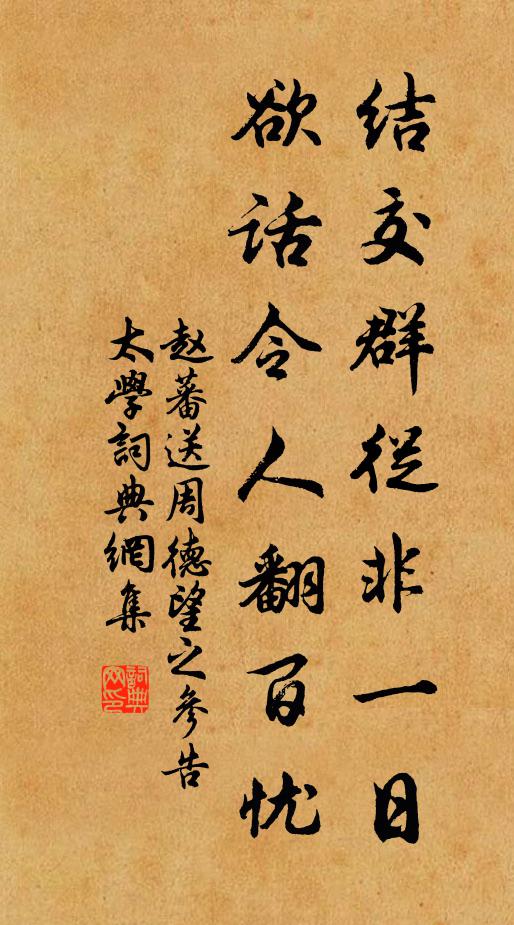 结交群從非一日
欲话令人翻百忧
赵蕃送周德望之參告
太學詞典網集
詞典網印